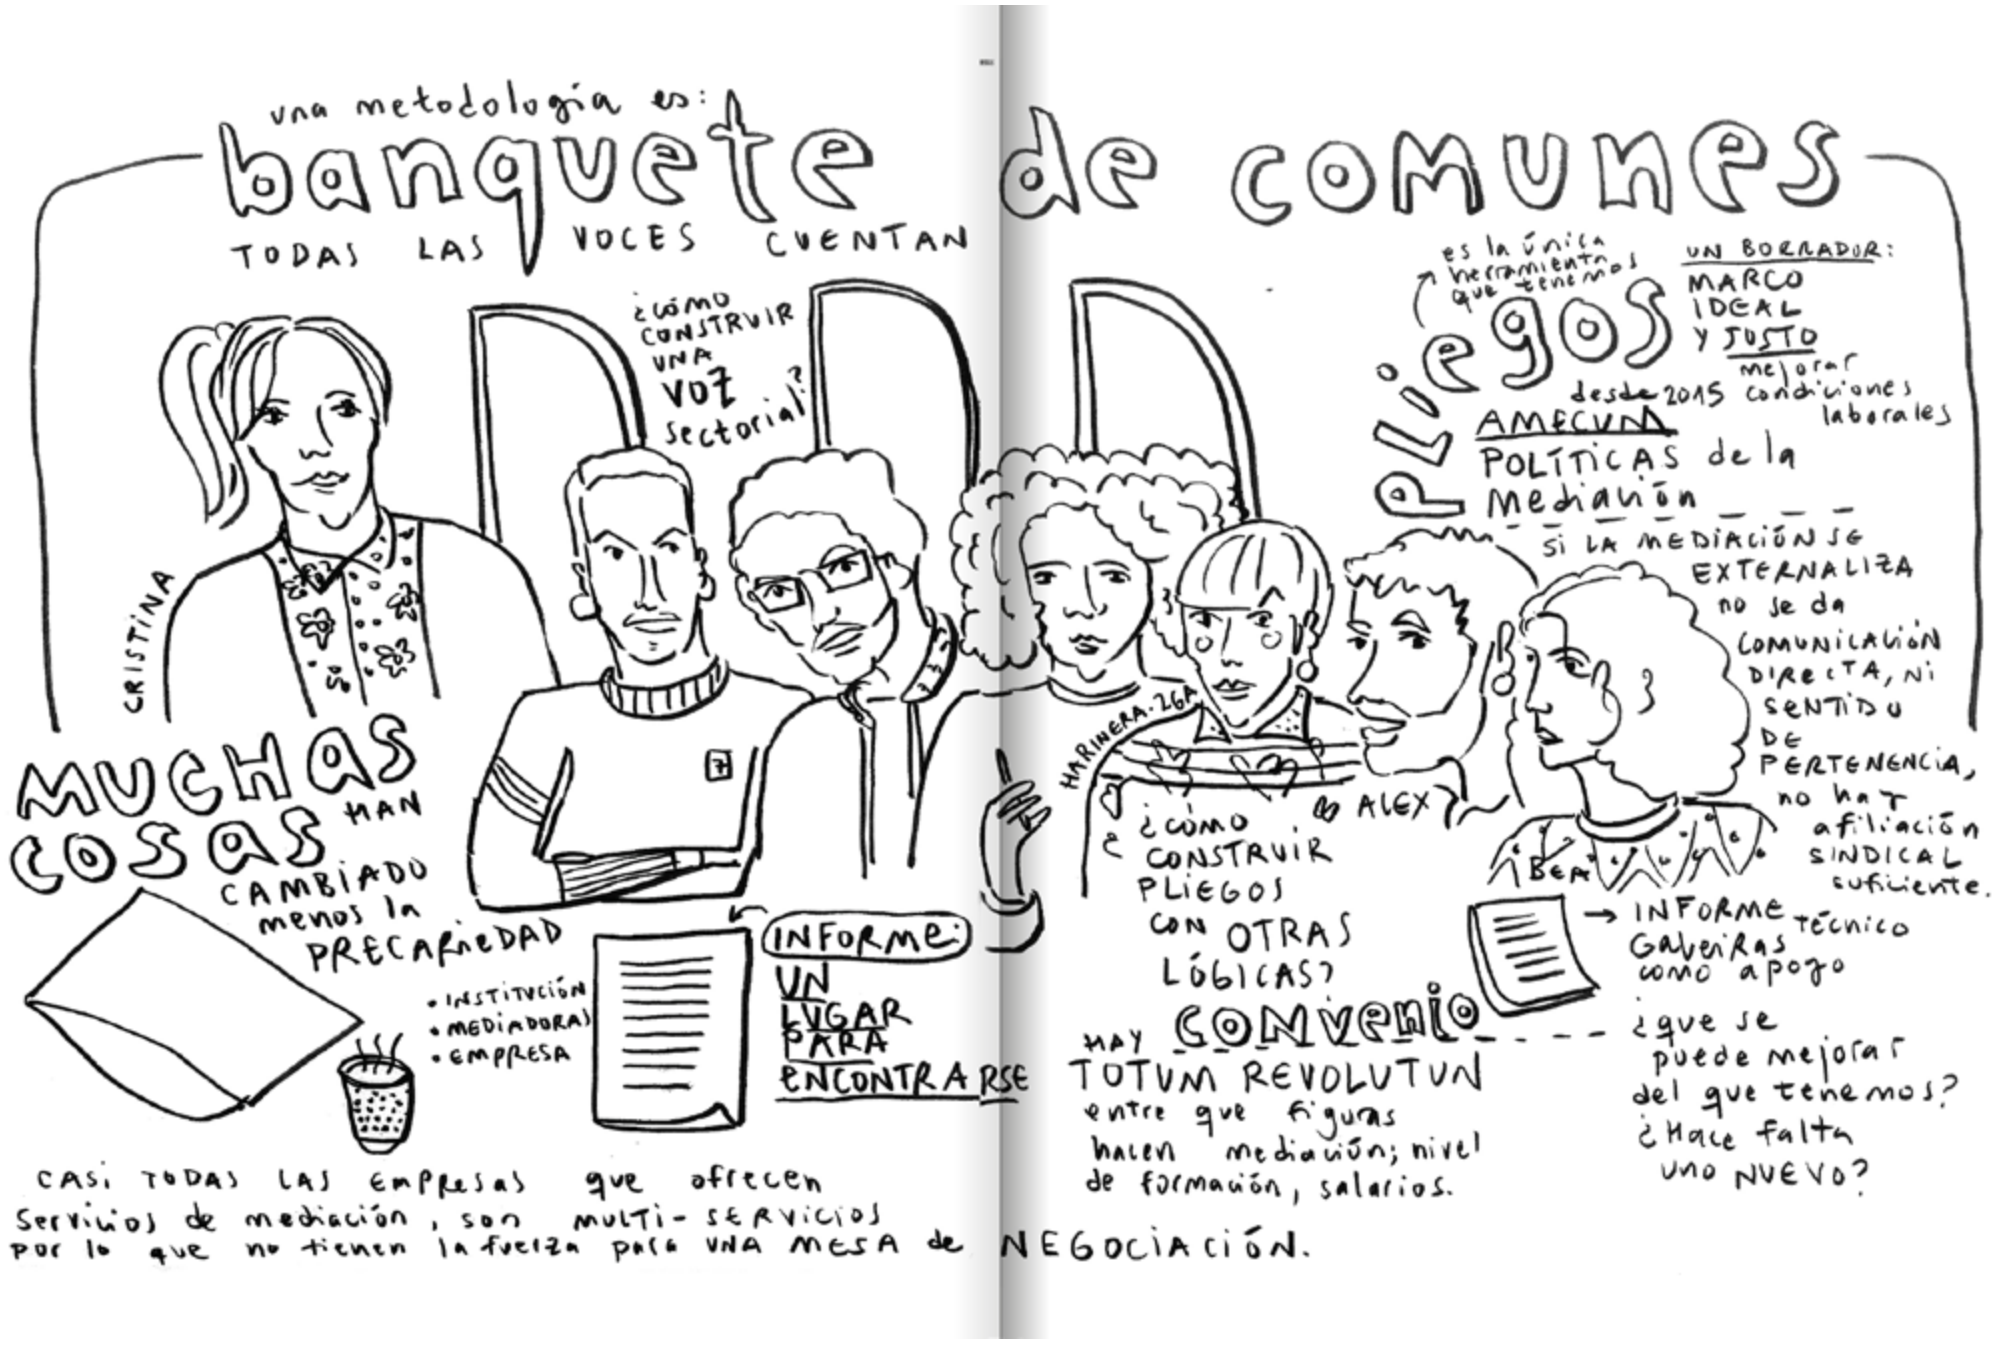 una metodología es:
banquete de comunes
TODAS LAS VOCES CUENTAN
¿CÓMO
CONSTRUIR
UNA
VOZ
sectorial?
CRISTINA
MUCHAS
COSAS HAN
CAMBIADO
menos la
PRECARIEDAD
• INSTITUCIÓN
• MEDIADORAS
• EMPRESA
INFORME:
UN
LUGAR
PARA
ENCONTRARSE
CASI TODAS LAS EMPRESAS que ofrecen
servicios de mediación, son MULTI-SERVICIOS
por lo que no tienen la fuerza para UNA MESA de NEGOCIACIÓN.
es la única
herramienta
que tenemos
PLiegos
UN BORRADOR:
MARCO
IDEAL
Y JUSTO
mejorar
condiciones
laborales
desde 2015
AMECUM
POLÍTICAS de la
mediación
SI LA MEDIACIÓN SE
EXTERNALIZA
no se da
COMUNICACIÓN
DIRECTA, NI
SENTIDO
DE
PERTENENCIA,
no hay
afiliación
SINDICAL
suficiente.
HARINERA·ZGZ
ALEX
BEA
¿CÓMO
CONSTRUIR
PLIEGOS
CON OTRAS
LÓGICAS?
→ INFORME técnico
como apoyo
HAY CONVENIO
TOTUM REVOLUTUN
entre que figuras
hacen mediación; nivel
de formación, salarios.
¿que se
puede mejorar
del que tenemos?
¿Hace falta
uno NUEVO?